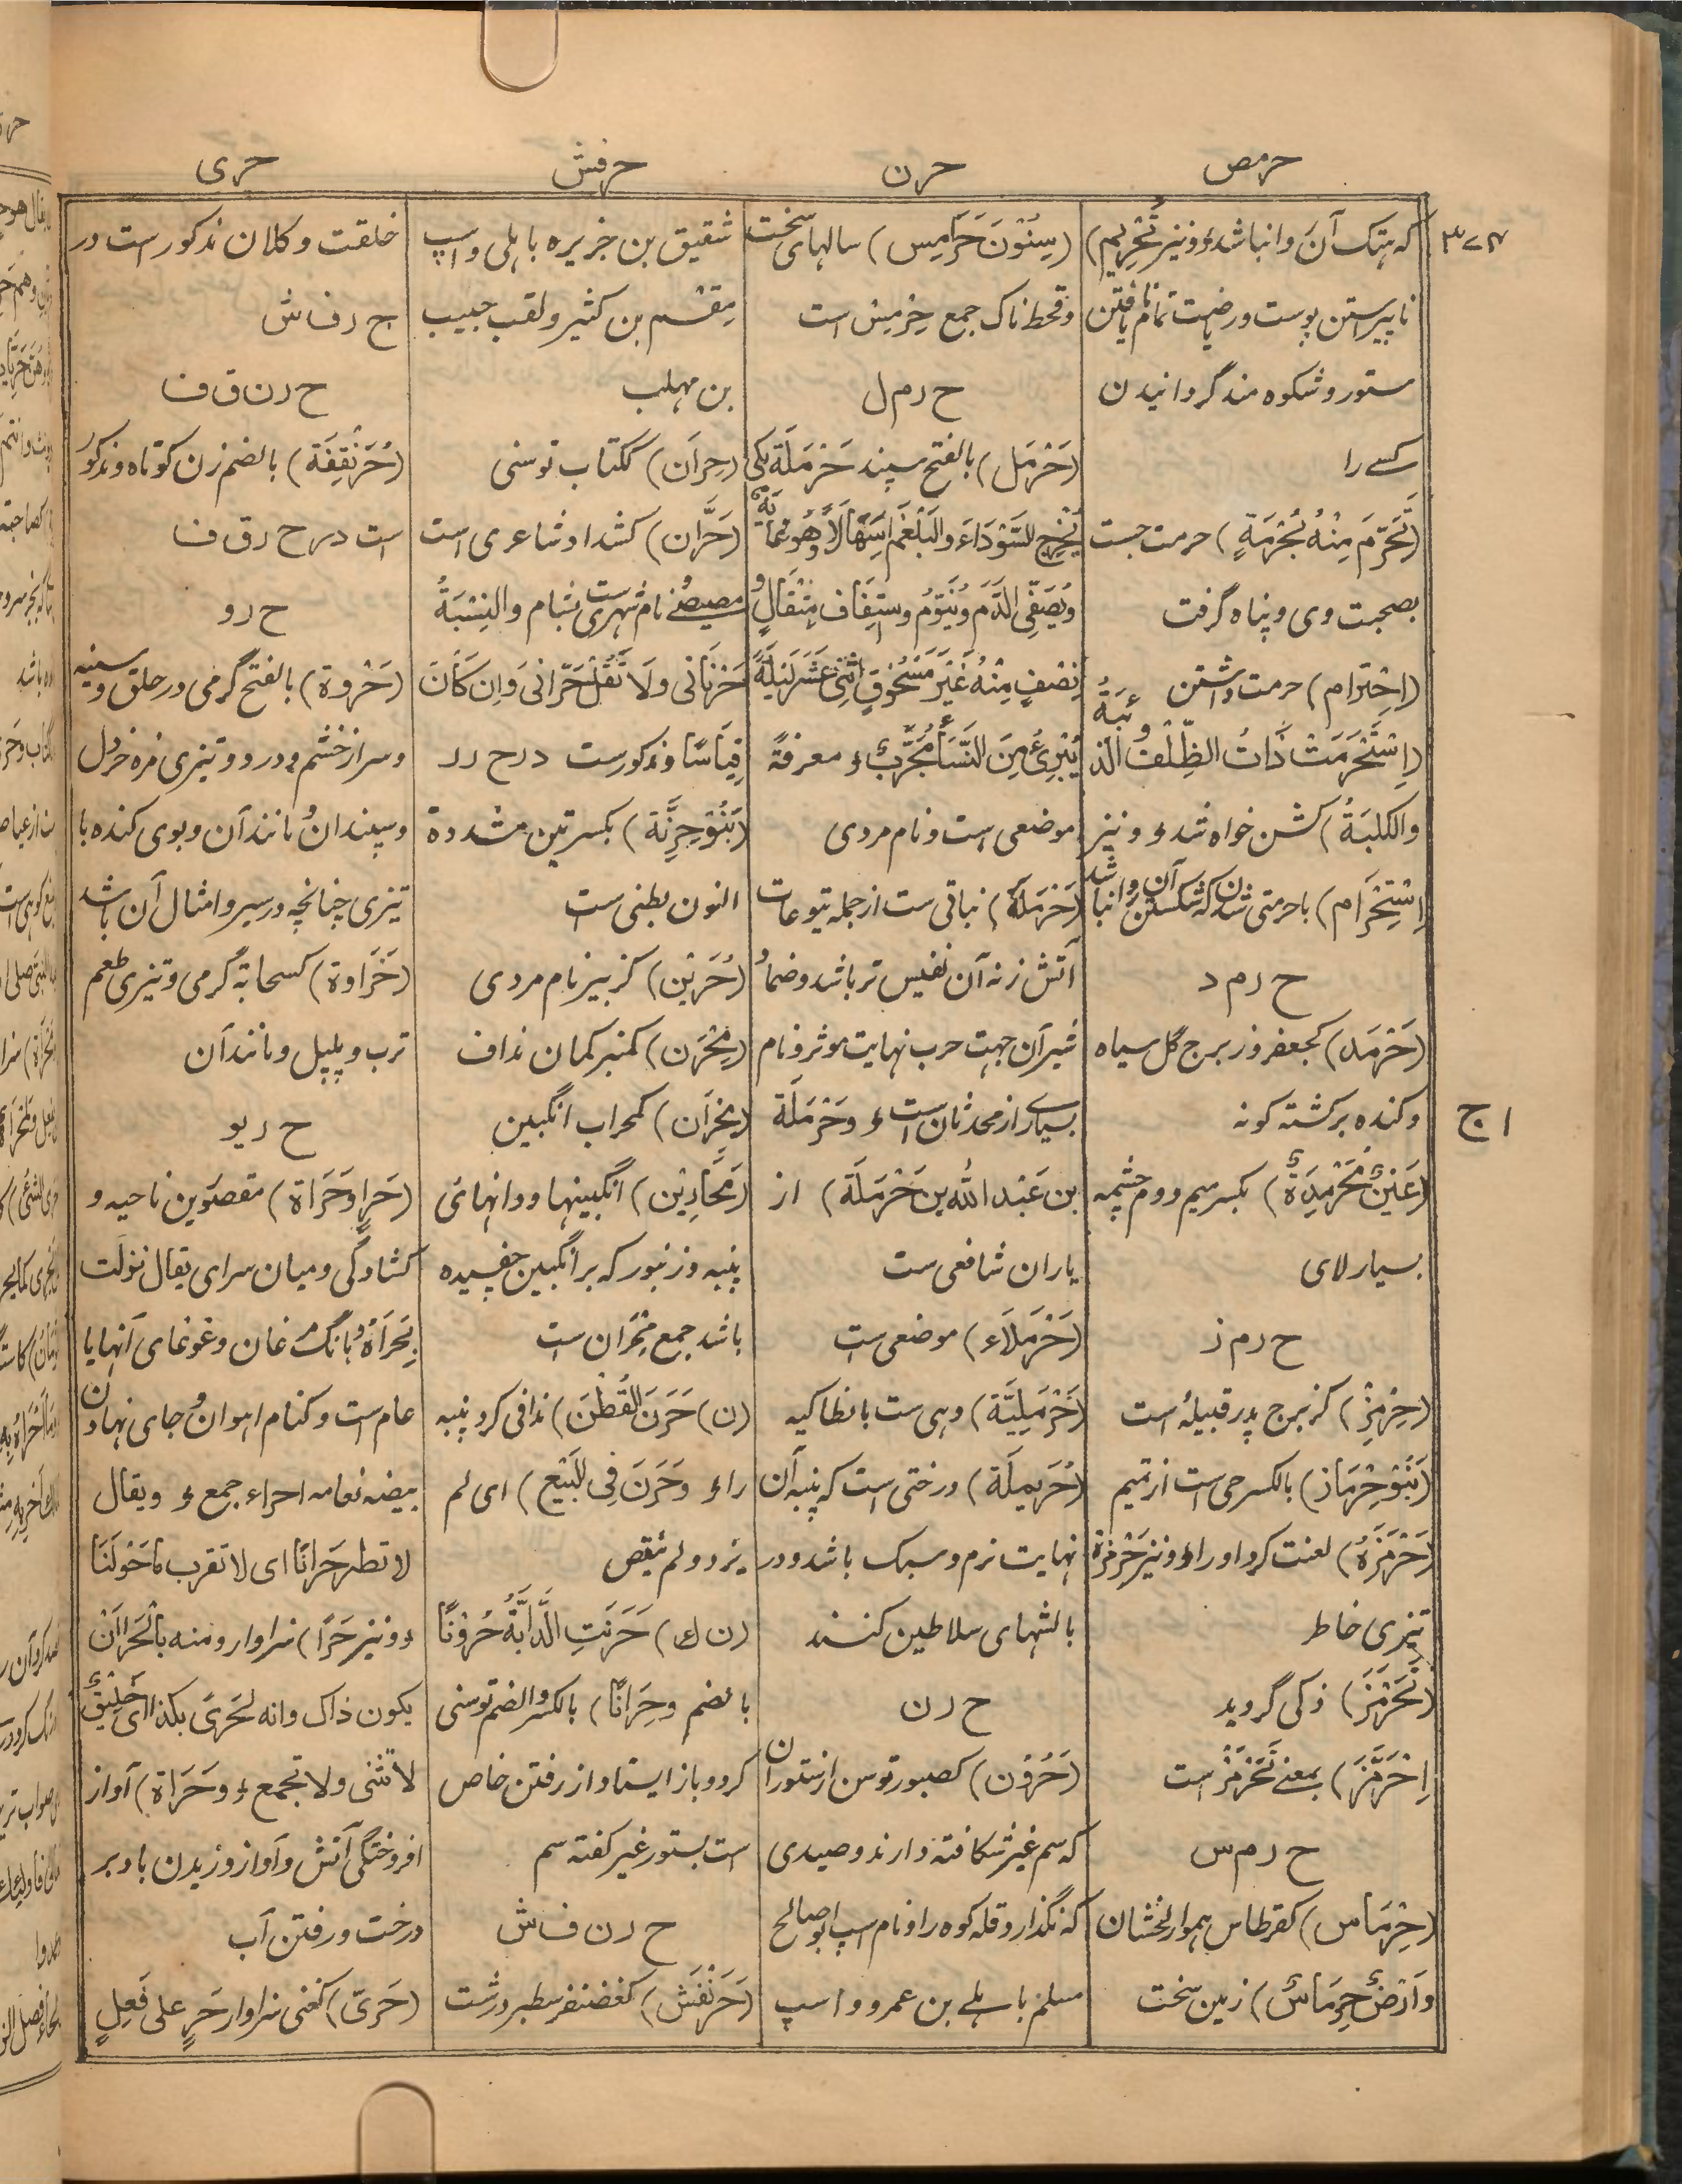 حرمص
حرن
حرفش
حری
۳۷۴
که هتک آن وا نباشد ء و نیز تَحْرِیم)
ناپیراستن پوست و ریاضت تمام نا یافتن
ستور و شکوه مند گردانیدن
کسے را
(تَحَرَّمَ مِنْهُ بُحْرْمَةٍ) حرمت جست
بصحبت وی و پناه گرفت
(اِحْتِرام) حرمت داشتن
(اِسْتَحْرَمَتْ ذَاتُ الظِّلْفُ الذئبَةُ
والکلبَةُ) گشن خواه شد ء و نیز
اِسْتِحْرَام) با حرمتی شدن که شکستن آن وا نباشد
ح ر م د
(حَرْمَد) کجعفر و زبرج گل سیاه
و گنده برگشته گونه
(عَیْنٌ مُحَرْمِدَةٌ) بکسر میم دوم چشمه
بسیار لای
ح ر م ز
(حِرْمِز) کزبرج پدر قبیلهٔ است
(بَنُوْ حِرْمَاز) بالکسر حی است از تمیم
(حَرْمَزَهُ) لعنت کرد او را ء و نیز حَرْمَزَة
تیزی خاطر
(تَحَرْمَزَ) زکی گردید
اِحْرَمَّزَ) بمعنے تَحَرْمَزَ است
ح ر م س
(حِرْمَاس) کقرطاس هموار لخشان
وَاَرْضٌ حِرْمَاسٌ) زمین سخت
ا ج
(سِنُوْنَ حَرَامِیس) سالهای سخت
و قحط ناک جمع حِرْمِیْس است
ح ر م ل
(حَرْمَل) بالفتح سپند حَرْمَلَة یکی
یُخْرِجُ السَّوْدَاءَ والبَلْغَمَ اِسْهَالًا وَهُوَ غَایَةٌ
وَیُصَفِّی الدَّمَ وَیُنَوِّمُ و اِسْتِفَافُ مِثْقَالٍ و
نِصْفٍ مِنْهُ غَیْرَ مَسْحُوْقٍ اِثْنَیْ عَشَرَ لَیْلَةً
یُبْرِئُ مِنَ النَّسَا مُجَرَّبٌ ء معرفةً
موضعی است و نام مردی
(حَرْمَلَة) نباتی ست از جمله یتوعات
آتش زنه آن نفیس تر باشد و ضماد
شیر آن جهت جرب نهایت موثر و نام
بسیارے از محدثان است ء وحَرْمَلَة
بن عَبْد الله بن حَرْمَلَة) از
یاران شافعی ست
(حَرْمَلَاء) موضعی ست
(حَرْمَلِیَّة) دهی ست بانطاکیه
(حُرَیمِلَة) درختی است که پنبهٔ آن
نهایت نرم و سبک باشد و در
بالشهای سلاطین کنند
ح ر ن
(حَرُوْن) کصبور توسن از ستوران
که سم غیر شکافته دارند و صیدی
که نگذارد قله کوه را و نام اسپ ابو صالح
مسلم باهلے بن عمرو و اسپ
شقیق بن جریره باهلی و اسپ
مِقْسم بن کثیر و لقب حبیب
بن مهلب
(حِرَان) ککتاب توسنی
(حَرَّان) کشداد شاعری است
نام شهری ست بشام والنِسْبَةُ
حَرْنَانی وَلَا تَقُلْ حَرّانی وَاِن کَانَ
قِیَاسًا و مذکور ست در ح ر ر
(بَنُوْ حِرِنَّة) بکسرتین مشددة
النون بطنی ست
(حُرَیْن) کزبیر نام مردی
(مِحْرَن) کمنبر کمان نداف
(مِحْرَان) کمحراب انگبین
(مَحَارِیْن) انگبینها و دانهای
پنبه و زنبور که بر انگبین چفسیده
باشد جمع مِحْرَان ست
(ن) حَرَنَ القُطْنَ) ندافی کرد پنبه
را ء وحَرَنَ فِی البَیْع) ای لم
یزد و لم ینقص
(ن ك) حَرَنَتِ الدَّابَّةُ حُرُوْنًا
بالضم وحِرَانًا) بالکسر والضم توسنی
کرد و باز ایستاد از رفتن خاص
است بستور غیر کفته سم
ح ر ن ف ش
(حَرَنْفَش) کغضنفر سطبر درشت
خلقت و کلان مذکور است در
ح ر ف ش
ح ر ن ق ف
(حُرَنْقِفَة) بالضم زن کوتاه و مذکور
است در ح ر ق ف
ح ر و
(حَرْوة) بالفتح گرمی در حلق و سینه
و سر از خشم و درد و تیزی مزه خردل
و سپندان و مانند آن و بوی گنده با
تیزی چنانچه در سیر و امثال آن باشد
(حَرَاوة) کسحابة گرمی و تیزی طعم
ترب و پلپل و مانند آن
ح ر ی و
(حَرًا وحَرَاة) مقصورین ناحیه و
کشادگی و میان سرای یقال نزلت
بِحَرَاهُ و بانگ مرغان و غوغای آنها یا
عام است و کنام اهوان و جای نهادن
بیضه نعامه احراء جمع ء ویقال
لا تطر حَرَانًا ای لا تقرب مَاحَوْلَنَا
ء و نیز حَرًا) سزاوار و منه بِالْحَرَا اَنْ
یکون ذاك وانه لَحَرًی بکذا ای خلِیْقٌ
لا تثنی ولا تجمع ء وحَرَاة) آواز
افروختگی آتش و آواز وزیدن باد بر
درخت و رفتن آب
(حَرِیّ) کغنی سزاوار حَرٍ علی فَعِلٍ